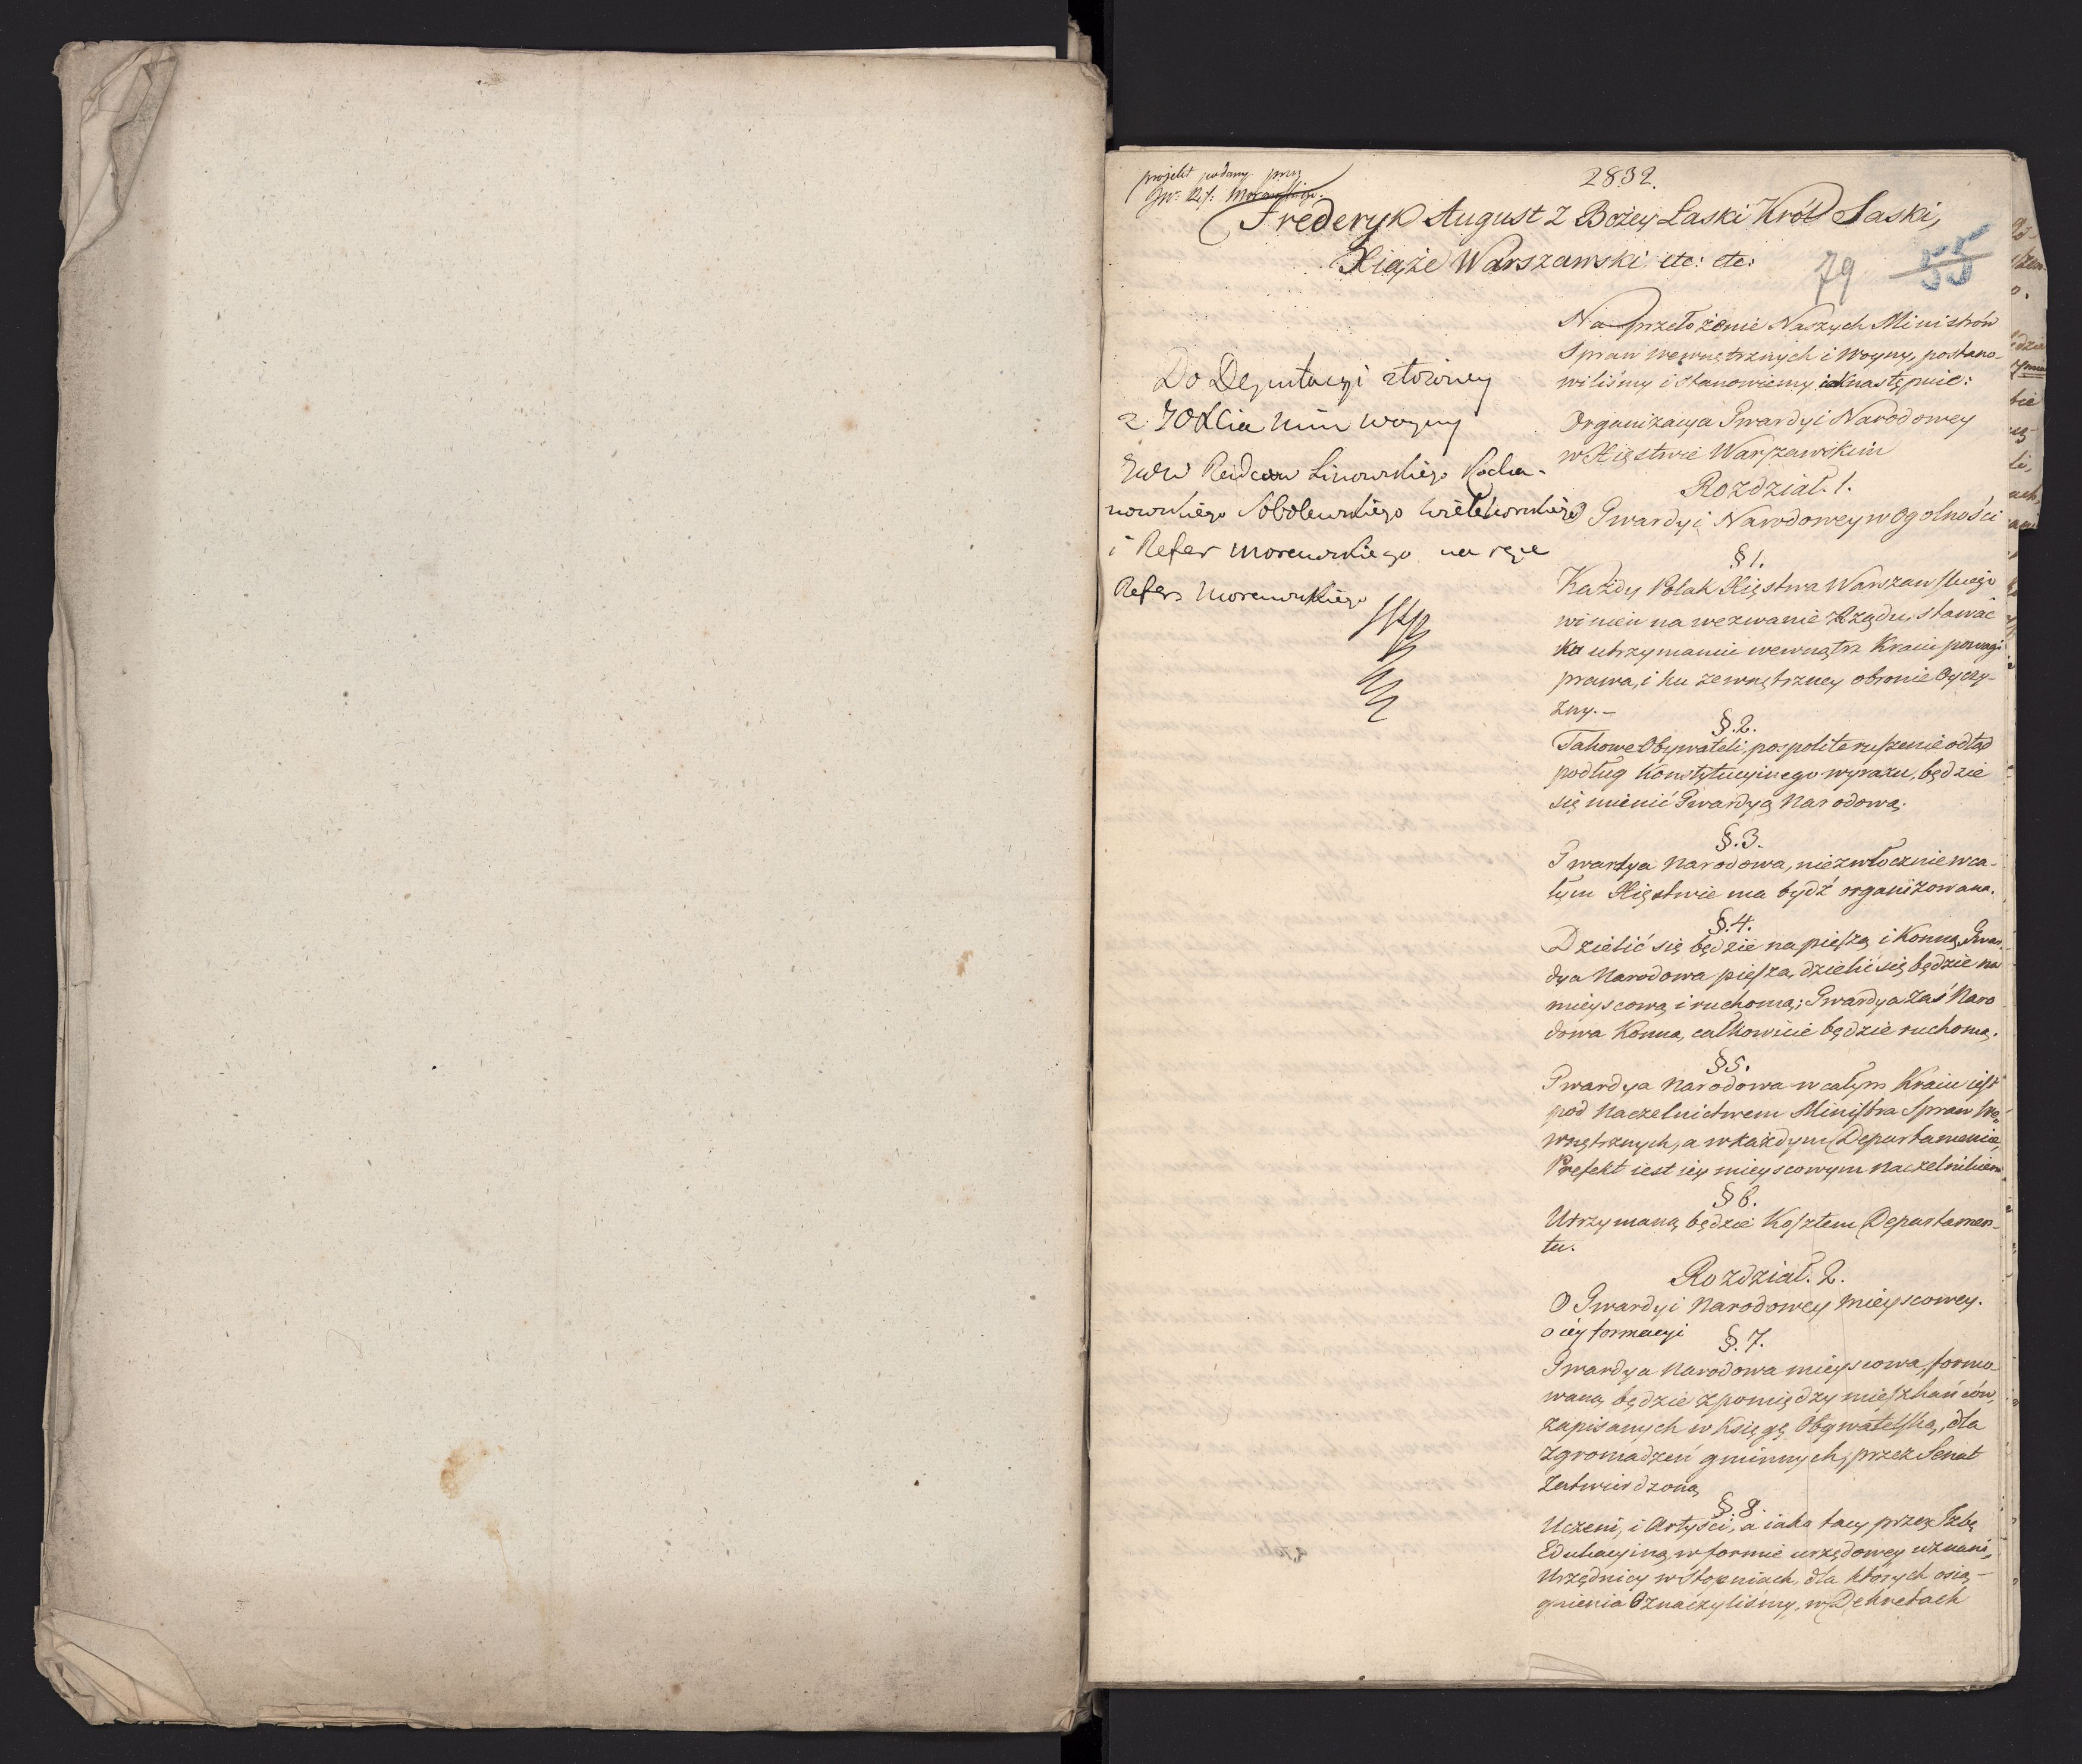 projekt podany przez
JW. Ref: Morawskiego
2832.
Frederyk August Z Bożey Łaski Król Saski,
Xiąże Warszawski etc: etc:
79 55
Do Deputacyi złożoney
z JO Xcia Min Woyny
JWW Radców Linowskiego Kocha-
nowskiego Sobolewskiego Wielohorskiego
i Refer Morawskiego na ręce
Refer Morawskiego
Na przełożenie Naszych Ministrów
Spraw wewnętrznych i Woyny, postano-
wiliśmy i stanowiemy iak następnie:
Organizacya Gwardyi Narodowey
w Xięstwie Warszawskim
Rozdział. 1.
O Gwardyi Narodowey w Ogolności
§ 1.
Każdy Polak Xięstwa Warszawskiego
winien na wezwanie Rządu, stawać
ku utrzymaniu wewnątrz Kraiu powagi
prawa, i ku zewnętrzney obronie Oyczy-
zny. -
§. 2.
Takowe Obywateli, pospolite ruszenie odtąd
podług Konstytucyinego wyrazu, będzie
się mienić Gwardyą Narodową.
§. 3.
Gwardya Narodowa, niezwłocznie w ca-
łym Xięstwie ma bydź organizowana.
§. 4.
Dzielić się będzie na pieszą i Konną, Gwar-
dya Narodowa piesza, dzielić się będzie na
mieyscową i ruchomą; Gwardya zaś Naro
dowa Konna, całkowicie będzie ruchomą.
§ 5.
Gwardya Narodowa w całym Kraiu iest
pod Naczelnictwem Ministra Spraw We-
wnętrznych, a w każdym Departamencie,
Prefekt iest iey mieyscowym Naczelnikiem
§ 6.
Utrzymaną będzie Kosztem Departamen-
tu.
Rozdział. 2.
O Gwardyi Narodowey Mieyscowey.
o iey formacyi
§. 7.
Gwardya Narodowa mieyscowa, formo-
waną będzie z pomiędzy mieszkańców,
zapisanych w Księgę Obywatelską, dla
Zgromadzeń gminnych, przez Senat
Zatwierdzoną
§. 8.
Uczeni, i Artyści, a iako tacy przez Izbę
Edukacyiną, w formie urzędowey uznani,
Urzędnicy w Stopniach, dla których osią-
gnienia Oznaczyliśmy, w Dekretach